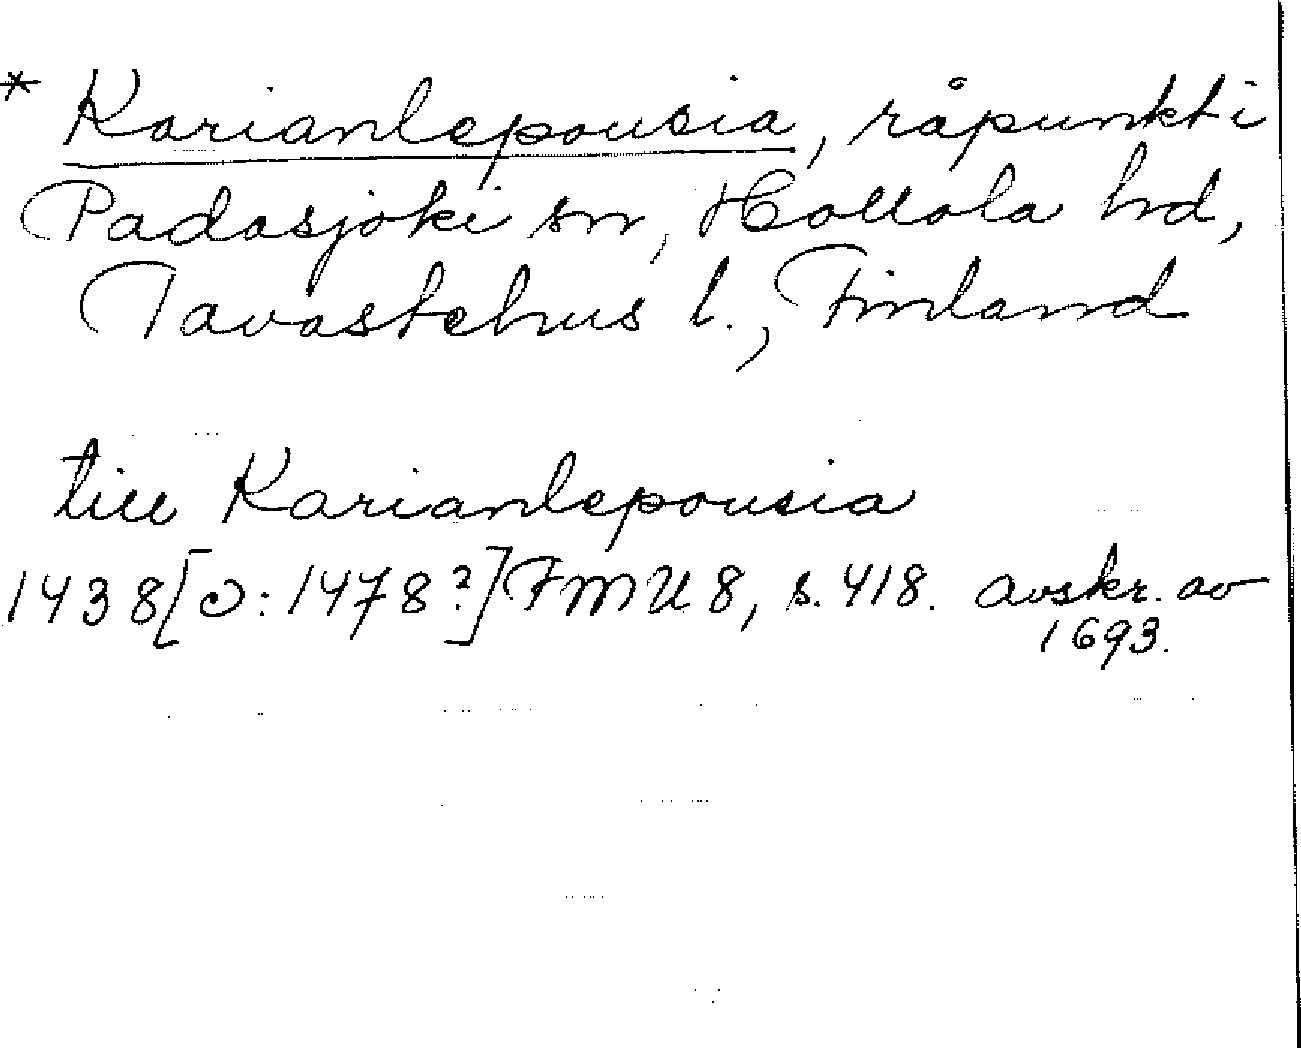 * Karianlepousia, råpunkt i
Padasjoki sn, Hollola hd,
Tavastehus l., Finland
till Karianlepousia
1438 [ɔ: 1478?] FMU 8, s. 418. avskr. av
1693.